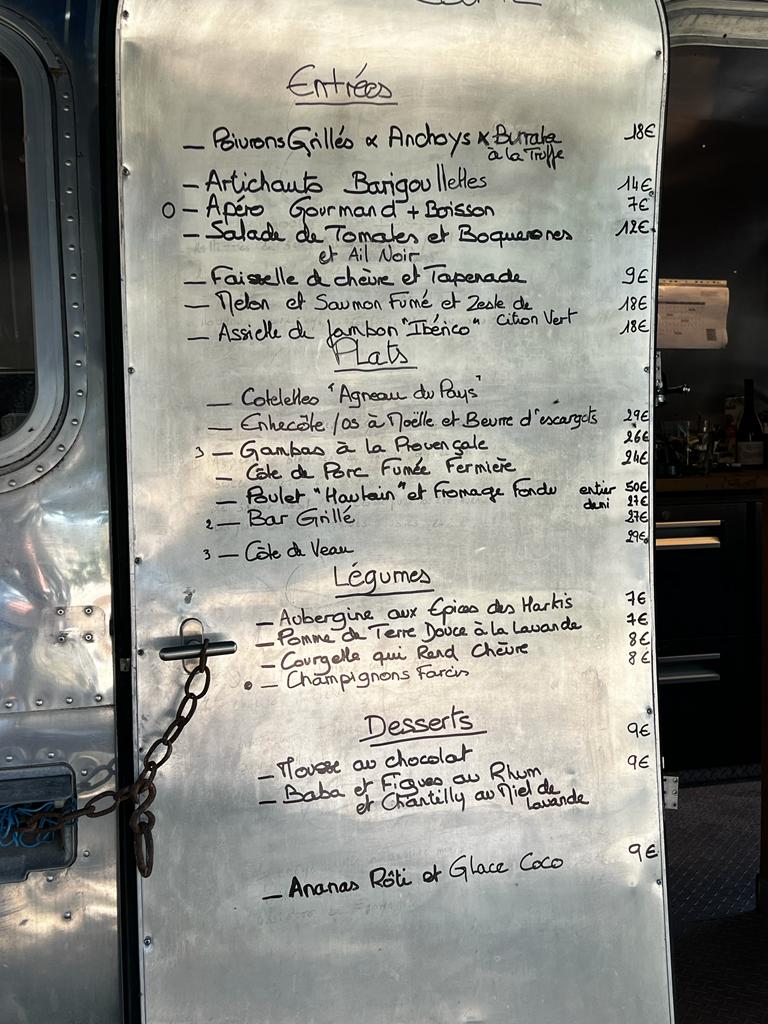 Entrées
— Poivrons Grillés & Anchoys x Burrata 18€
à la Truffe
— Artichauts Barigoullettes 14€
O — Apéro Gourmand + Boisson 7€
— Salade de Tomates et Boquerones 12€
et Ail Noir
— Faisselle de chèvre et Tapenade 9€
— Melon et Saumon Fumé et Zeste de 18€
Citron Vert
— Assiette de Jambon "Ibérico" 18€
Plats
— Cotelettes "Agneau du Pays"
— Entrecôte /os à Moëlle et Beurre d'escargots 29€
3 — Gambas à la Provençale 26€
— Côte de Porc Fumée Fermière 24€
— Poulet "Hautain" et Fromage Fondu entier 50€
demi 27€
2 — Bar Grillé 27€
3 — Côte de Veau 29€
Légumes
— Aubergine aux Épices des Harkis 7€
— Pomme de Terre Douce à la Lavande 7€
— Courgette qui Rend Chèvre 8€
— Champignons Farcis 8€
Desserts
— Mousse au chocolat 9€
— Baba et Figues au Rhum 9€
et Chantilly au Miel de
Lavande
— Ananas Rôti et Glace Coco 9€